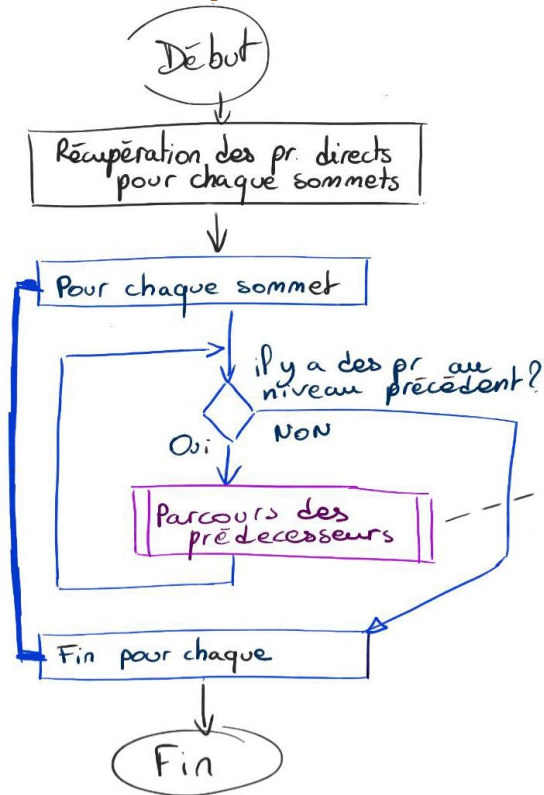 Début
Récupération des pr. directs
pour chaque sommets
Pour chaque sommet
il y a des pr au
niveau précédent?
Oui
NON
Parcours des
prédecesseurs
Fin pour chaque
Fin